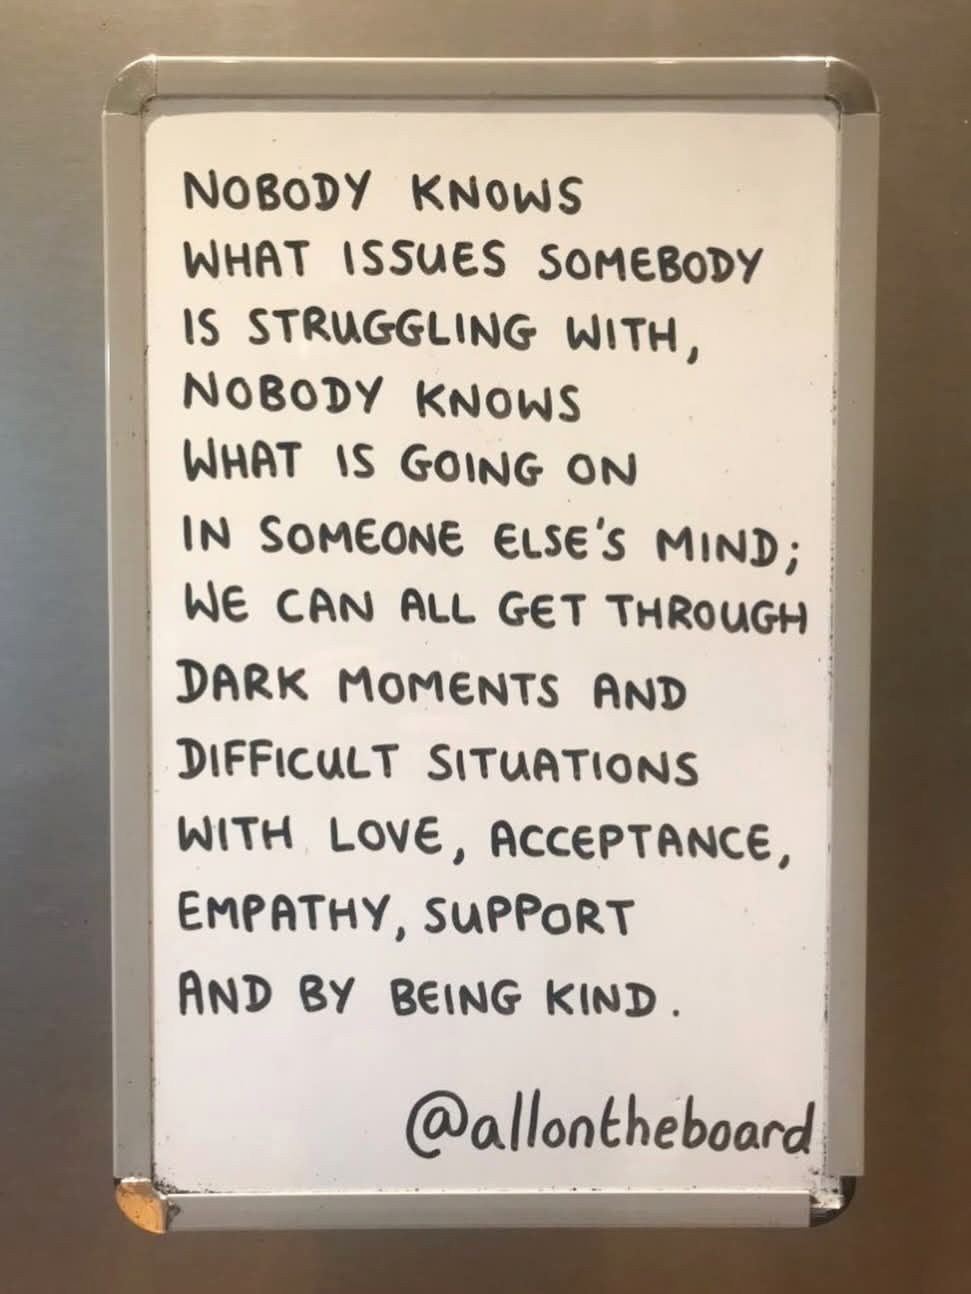 NOBODY KNOWS
WHAT ISSUES SOMEBODY
IS STRUGGLING WITH,
NOBODY KNOWS
WHAT IS GOING ON
IN SOMEONE ELSE'S MIND;
WE CAN ALL GET THROUGH
DARK MOMENTS AND
DIFFICULT SITUATIONS
WITH LOVE, ACCEPTANCE,
EMPATHY, SUPPORT
AND BY BEING KIND.
@allontheboard